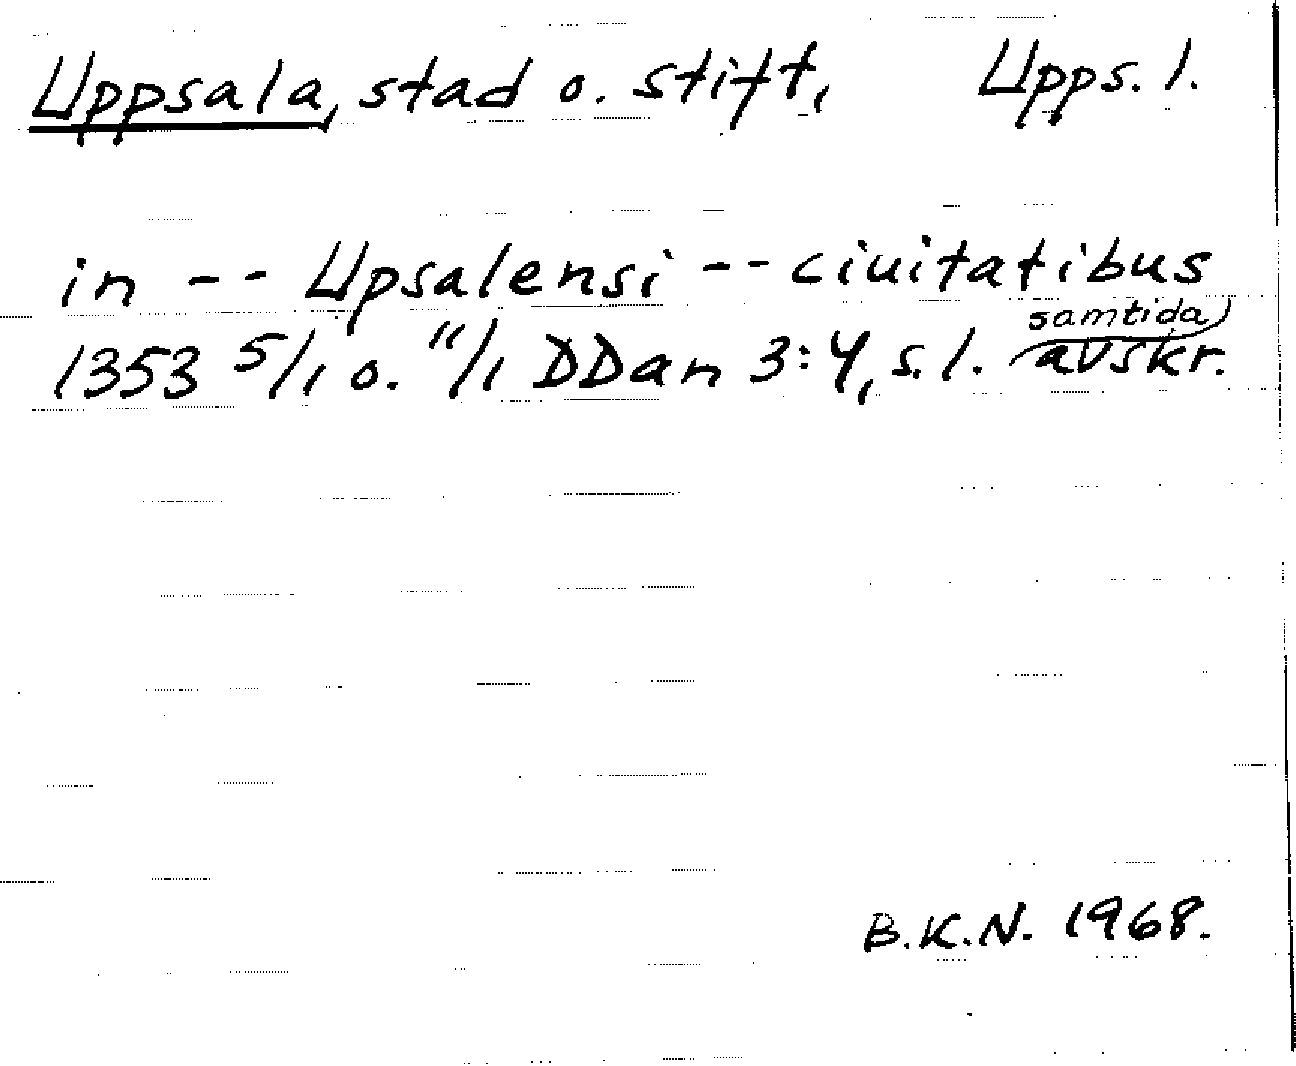 Uppsala, stad o. stift, Upps. l.
in -- Upsalensi -- ciuitatibus
1353 5/1 o. 11/1 DDan 3:4, s. 1. samtida avskr.
B.K.N. 1968.